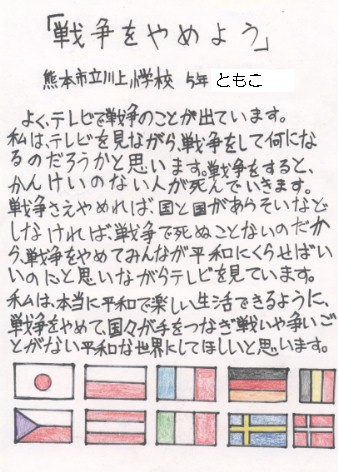 「戦争をやめよう」
熊本市立川上小学校 5年 ともこ
よく、テレビで戦争のことが出ています。
私は、テレビを見ながら、戦争をして何にな
るのだろうかと思います。戦争をすると、
かんけいのない人が死んでいきます。
戦争さえやめれば、国と国があらそいなど
しなければ、戦争で死ぬことないのだか
ら、戦争をやめてみんなが平和にくらせばい
いのにと思いながらテレビを見ています。
私は、本当に平和で楽しい生活できるように、
戦争をやめて、国々が手をつなぎ戦いや争いご
とがない平和な世界にしてほしいと思います。